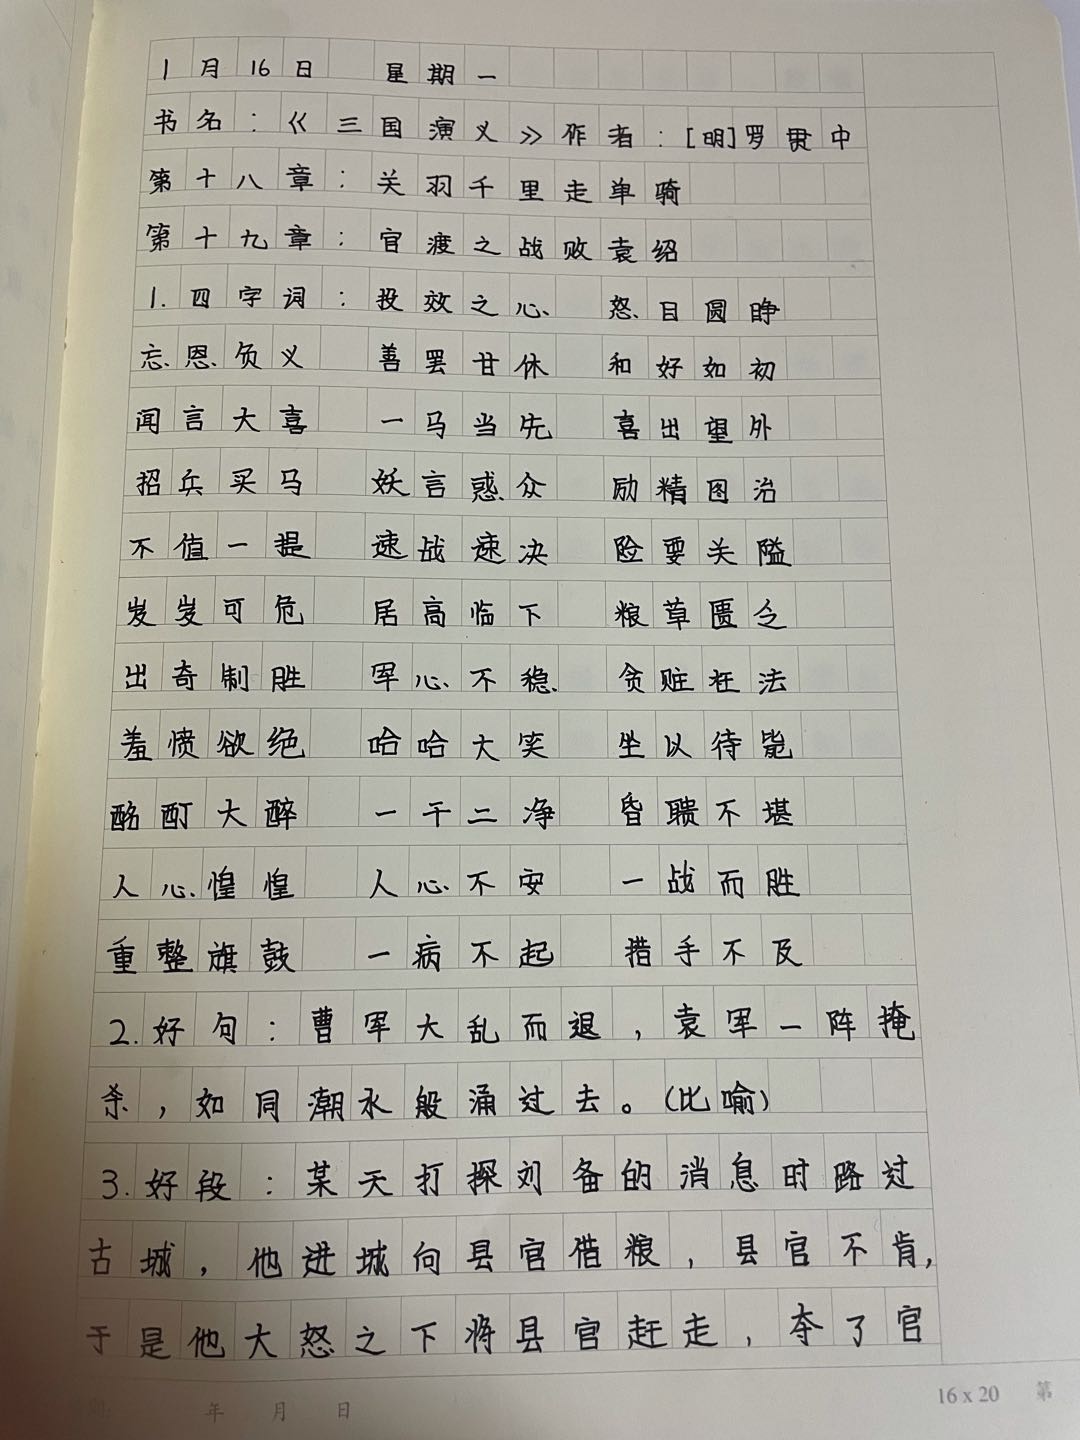 1月16日 星期一
书名：《三国演义》作者：[明]罗贯中
第十八章：关羽千里走单骑
第十九章：官渡之战败袁绍
1.四字词：投效之心 怒目圆睁
忘恩负义 善罢甘休 和好如初
闻言大喜 一马当先 喜出望外
招兵买马 妖言惑众 励精图治
不值一提 速战速决 险要关隘
岌岌可危 居高临下 粮草匮乏
出奇制胜 军心不稳 贪赃枉法
羞愤欲绝 哈哈大笑 坐以待毙
酩酊大醉 一干二净 昏聩不堪
人心惶惶 人心不安 一战而胜
重整旗鼓 一病不起 措手不及
2.好句：曹军大乱而退，袁军一阵掩
杀，如同潮水般涌过去。(比喻)
3.好段：某天打探刘备的消息时路过
古城，他进城向县官借粮，县官不肯，
于是他大怒之下将县官赶走，夺了官
年 月 日
16x20 第